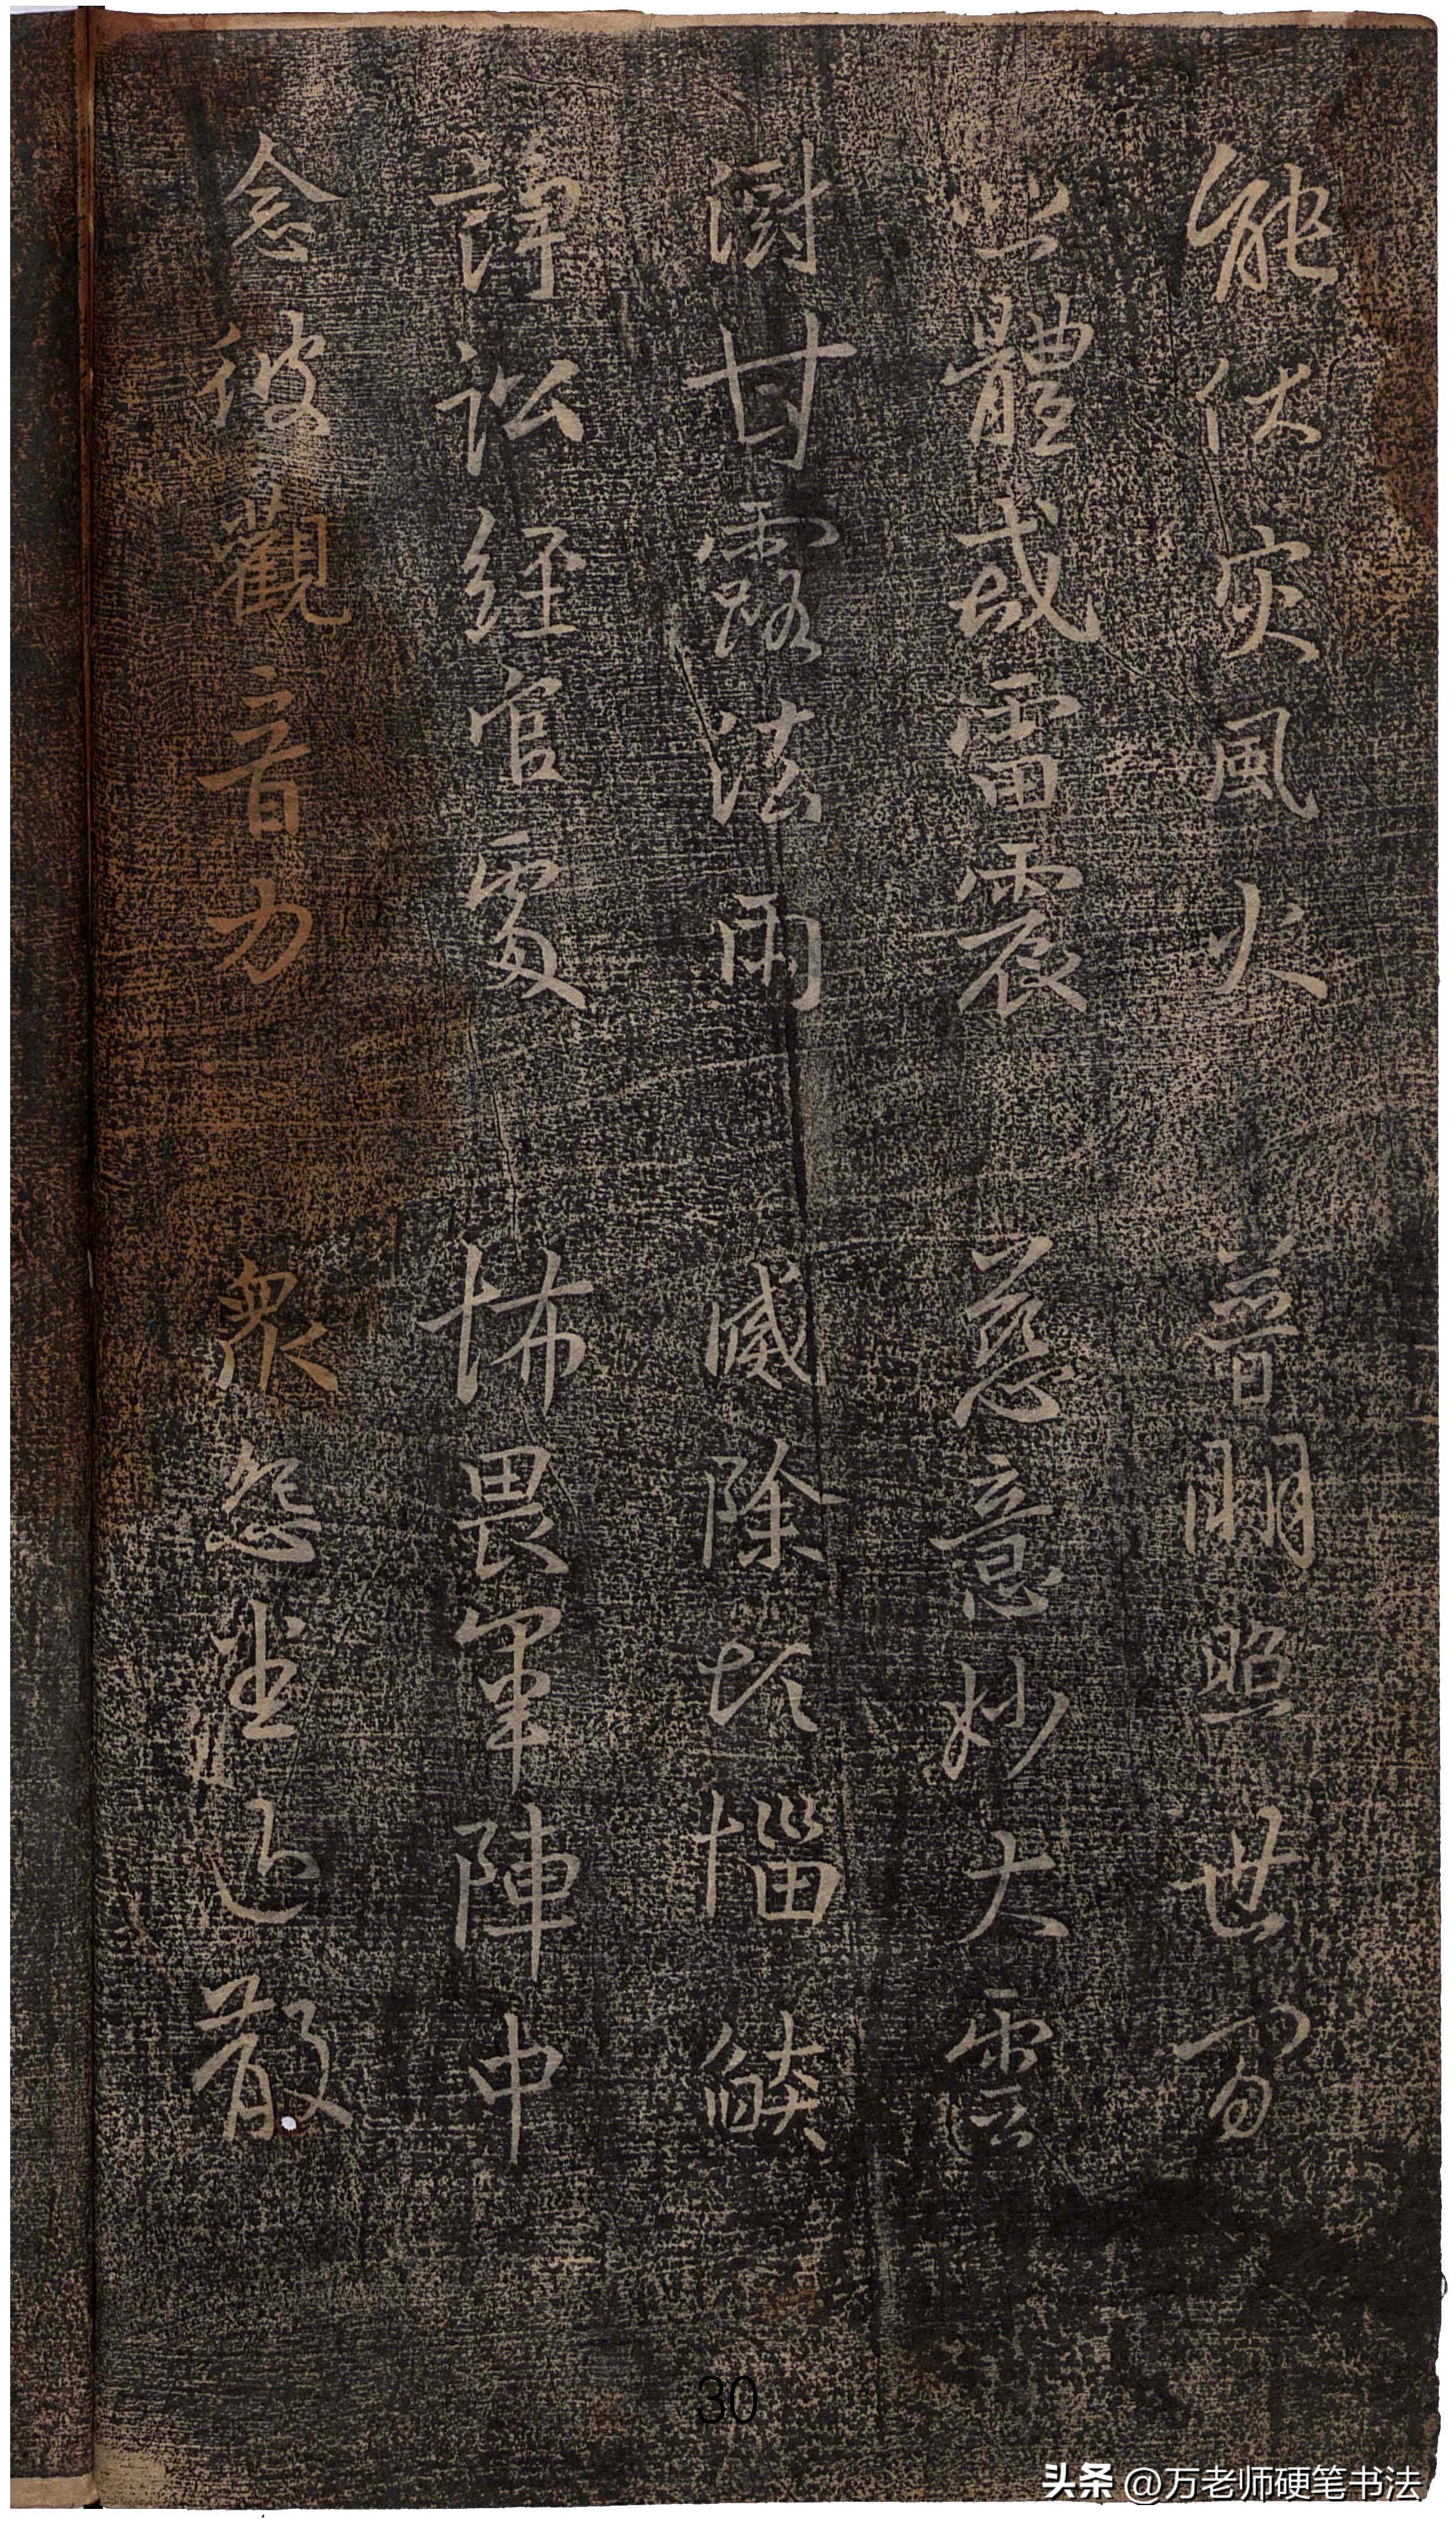 能伏灾風火　普明照世間
悲體戒雷震　慈意妙大雲
澍甘露法雨　滅除煩惱燄
諍訟經官處　怖畏軍陣中
念彼觀音力　衆怨悉退散
30
头条 @万老师硬笔书法